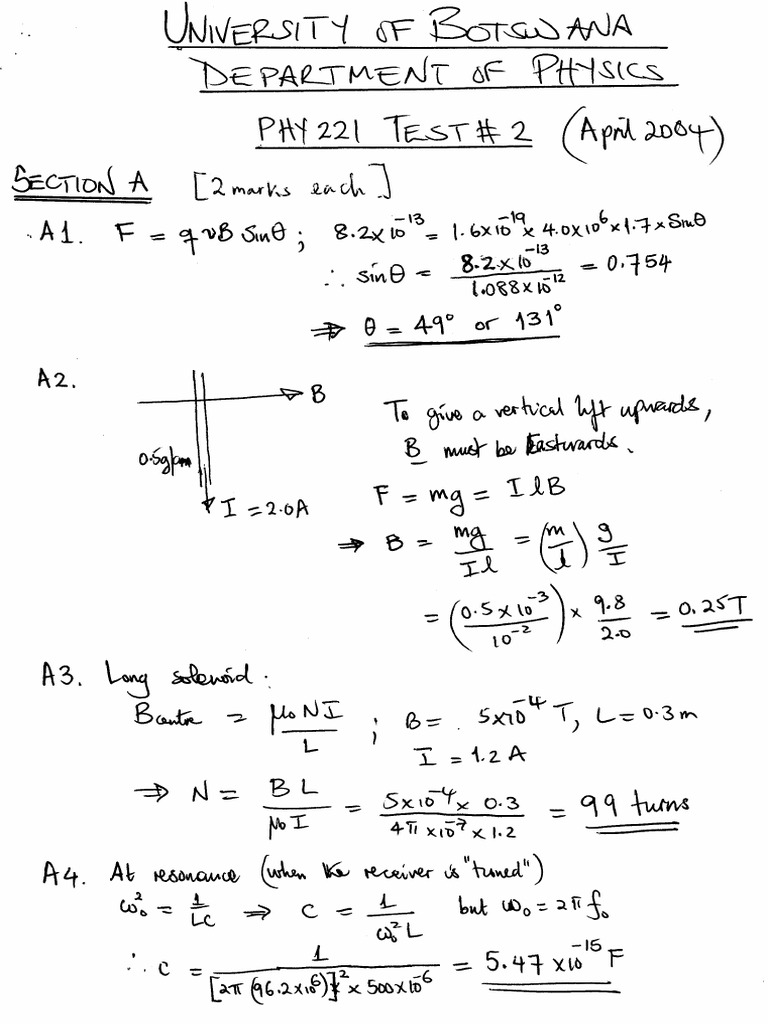 UNIVERSITY OF BOTSWANA
DEPARTMENT OF PHYSICS
PHY 221 TEST # 2 (April 2004)
SECTION A [2 marks each]
A1. F = qvB Sinθ; 8.2×10⁻¹³ = 1.6×10⁻¹⁹ × 4.0×10⁶ × 1.7 × Sinθ
∴ sinθ = 8.2×10⁻¹³ / 1.088×10⁻¹² = 0.754
⇒ θ = 49° or 131°
A2.
B
0.5g/cm
I = 2.0A
To give a vertical lift upwards,
B must be Eastwards.
F = mg = IlB
⇒ B = mg / Il = (m / l) g / I
= (0.5×10⁻³ / 10⁻²) × 9.8 / 2.0 = 0.25T
A3. Long solenoid:
Bcentre = μ₀NI / L ; B = 5×10⁻⁴ T, L = 0.3 m
I = 1.2 A
⇒ N = BL / μ₀I = 5×10⁻⁴ × 0.3 / 4π×10⁻⁷ × 1.2 = 99 turns
A4. At resonance (when the receiver is "tuned")
ω₀² = 1 / LC ⇒ C = 1 / ω₀²L but ω₀ = 2πf₀
∴ C = 1 / [2π(96.2×10⁶)]² × 500×10⁻⁶ = 5.47 ×10⁻¹⁵ F